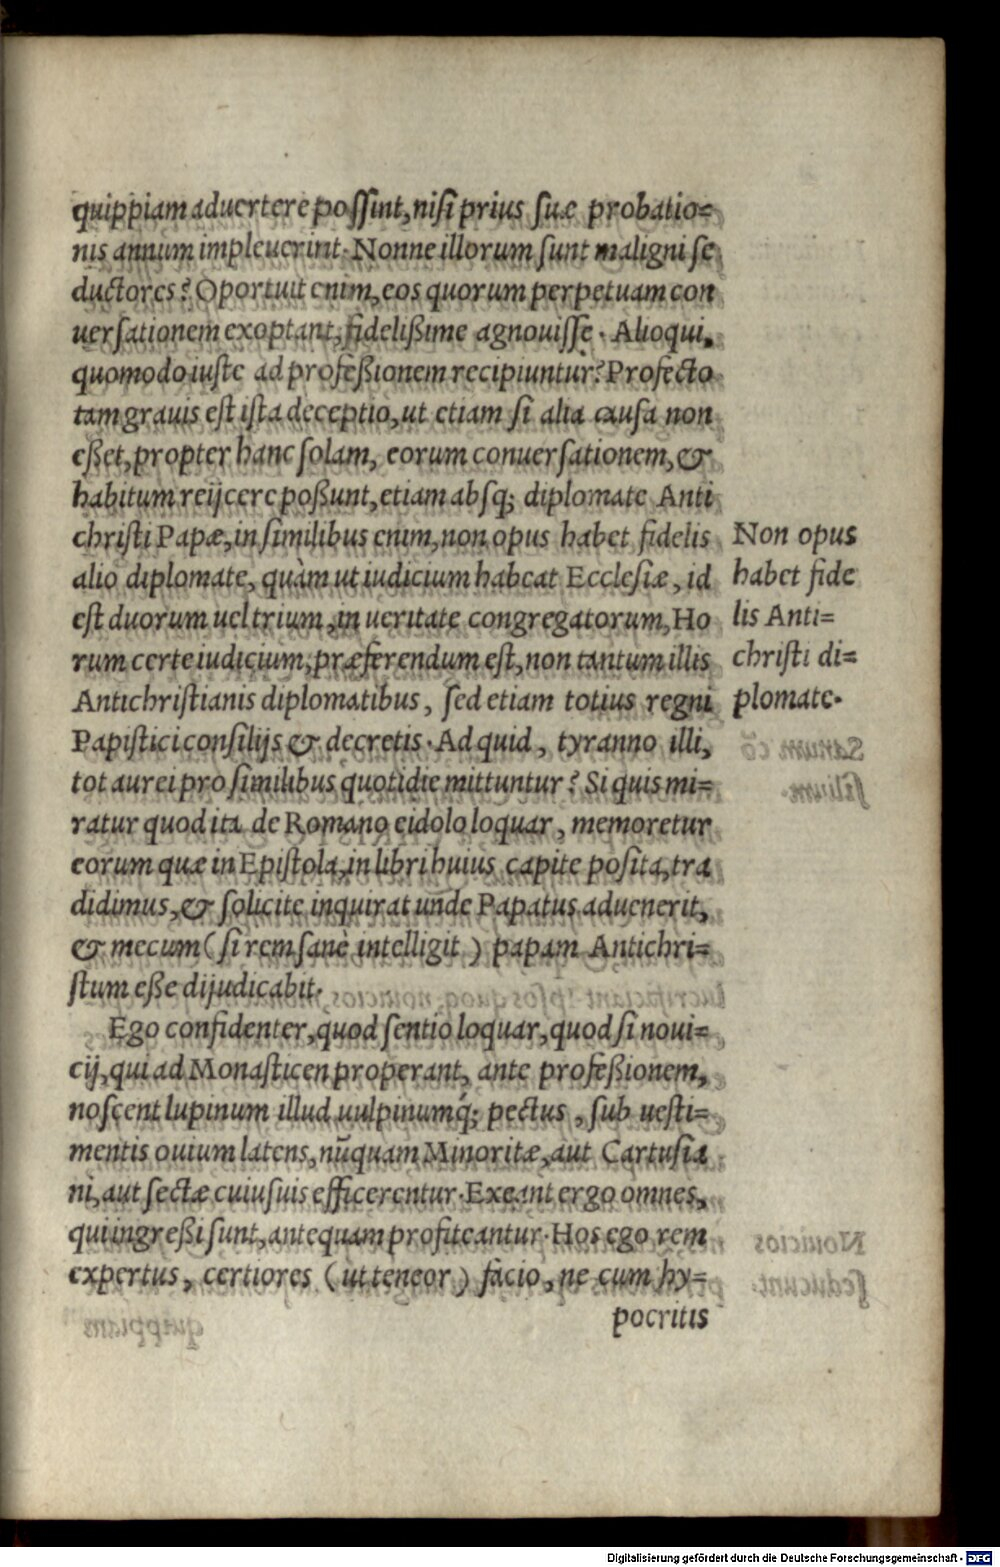 quippiam aduertere poſſint, niſi prius ſuæ probatio=
nis annum impleuerint. Nonne illorum ſunt maligni ſe
ductores? Oportuit enim, eos quorum perpetuam con
uerſationem exoptant, fideliſsime agnouiſſe. Alioqui,
quomodo iuſte ad profeßionem recipiuntur? Profecto
tam grauis eſt iſta deceptio, ut etiam ſi alia cauſa non
eßet, propter hanc ſolam, eorum conuerſationem, &
habitum reijcere poßunt, etiam abſq; diplomate Anti
chriſti Papæ, in ſimilibus enim, non opus habet fidelis
alio diplomate, quàm ut iudicium habeat Eccleſiæ, id
eſt duorum uel trium, in ueritate congregatorum, Ho
rum certe iudicium, præferendum eſt, non tantum illis
Antichriſtianis diplomatibus, ſed etiam totius regni
Papiſtici conſilijs & decretis. Ad quid, tyranno illi,
tot aurei pro ſimilibus quotidie mittuntur? Si quis mi=
ratur quod ita de Romano eidolo loquar, memoretur
eorum quæ in Epiſtola, in libri huius capite poſita, tra
didimus, & ſolicite inquirat unde Papatus aduenerit,
& mecum (ſi rem ſanè intelligit) papam Antichri=
ſtum eße dijudicabit.
Ego confidenter, quod ſentio loquar, quod ſi noui=
cij, qui ad Monaſticen properant, ante profeßionem,
noſcent lupinum illud uulpinumq́; pectus, ſub ueſti=
mentis ouium latens, nũquam Minoritæ, aut Cartuſia
ni, aut ſectæ cuiuſuis efficerentur. Exeant ergo omnes,
qui ingreßi ſunt, antequam profiteantur. Hos ego rem
expertus, certiores (ut teneor) facio, ne cum hy=
pocritis
Non opus
habet fide
lis Anti=
chriſti di=
plomate.
Digitalisierung gefördert durch die Deutsche Forschungsgemeinschaft - DFG